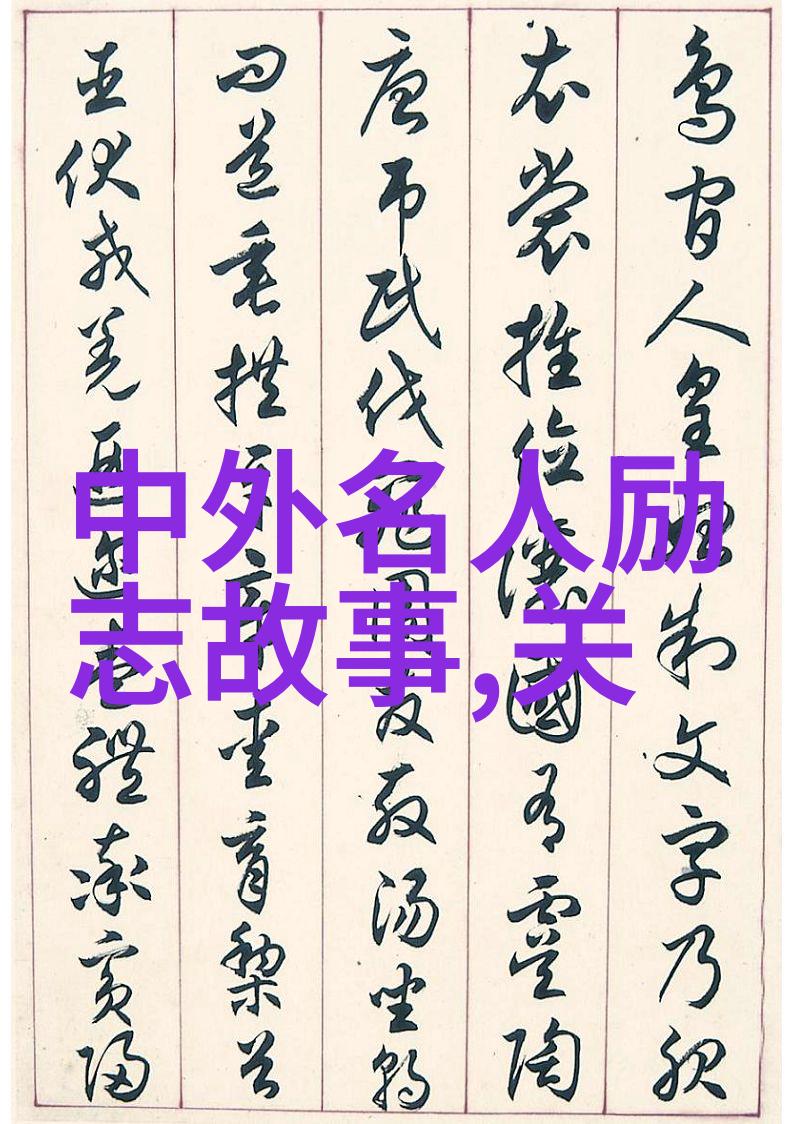 鳥官人皇始制文字乃服
衣裳推位讓國有虞陶
唐吊民伐罪周發殷湯坐朝
問道垂拱平章愛育黎首
臣伏戎羌遐邇壹體率賓歸
中外名人励
志故事,关